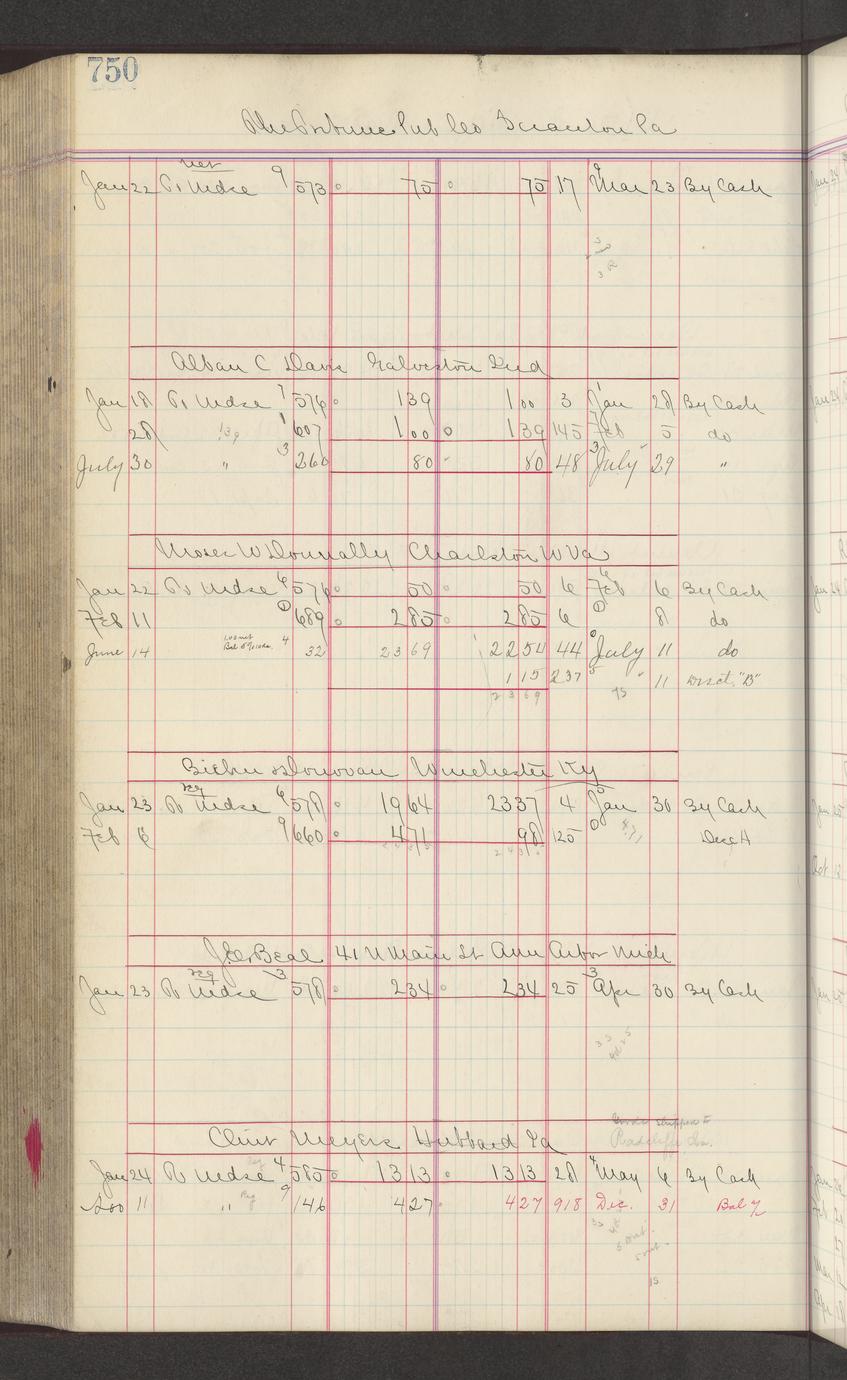 750
The Fortune Pub Co Scranton Pa
net
Jan 22 To Mdse 9 573 75 75 17 9 Mar 23 By Cash
Alban C Davis Galveston Ind
Jan 18 To Mdse 7 576 139 1 00 3 1 Jan 28 By Cash
28 139 1 607 1 00 139 145 7 Feb 5 do
July 30 " 3 260 80 80 48 3 July 29 "
Moses W Donnally Charleston W Va
Jan 22 To Mdse 6 576 50 50 6 6 Feb 6 By Cash
Feb 11 689 2 85 2 85 6 8 do
June 14 4 32 23 69 22 54 44 July 11 do
1 15 237 5 " 11 Disct. "B"
23 69 75
Donovan Winchester Ky
reg
Jan 23 To Mdse 6 578 19 64 23 37 4 0 Jan 30 By Cash
Feb 6 9 660 4 71 98 125 0
J.C. Beal 41 N Main St Ann Arbor Mich
reg
Jan 23 To Mdse 3 578 2 34 2 34 25 3 Apr 30 By Cash
Goods shipped to
Radcliffe Ia.
Clint Meyers Hubbard Ia
Jan 24 To Mdse 4 585 13 13 13 13 28 4 May 6 By Cash
11 " Reg 9 146 4 27 4 27 918 Dec. 31 Bal 7
15